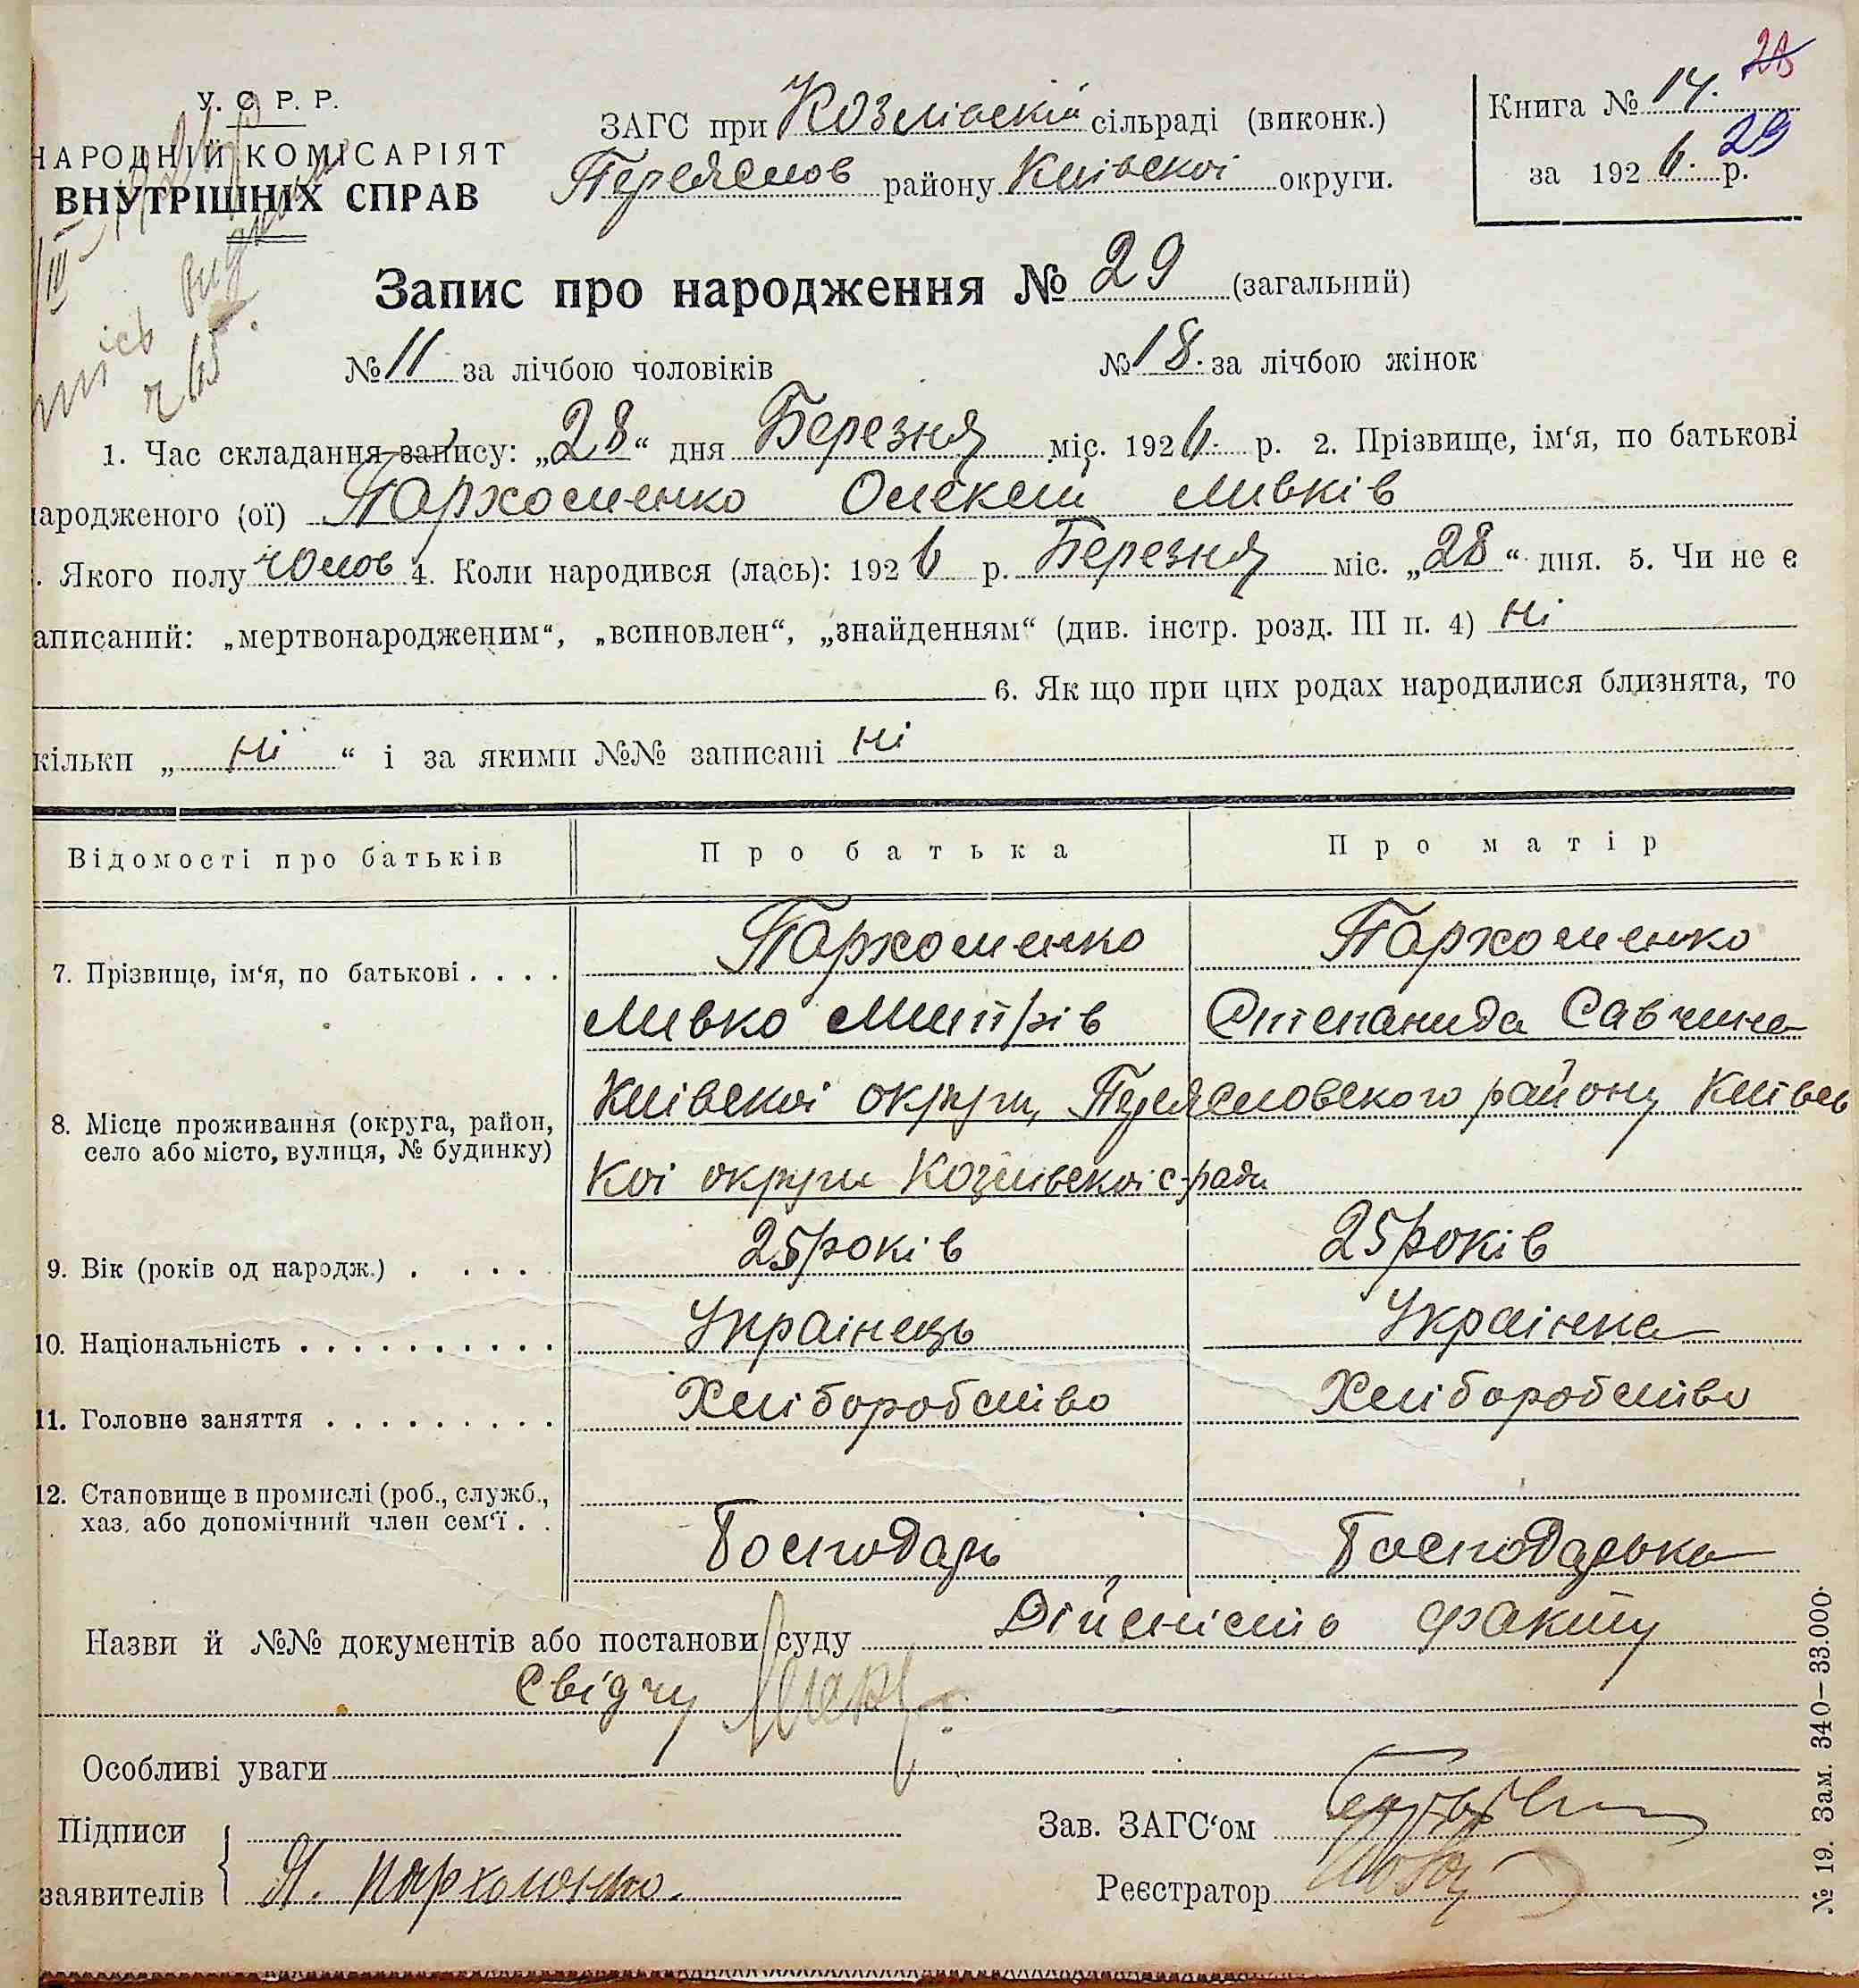 У. С. Р. Р.
НАРОДНІЙ КОМІСАРІЯТ
ВНУТРІШНІХ СПРАВ
ЗАГС при Козлівскій сільраді (виконк.)
Переяслов району Київскої округи.
Книга № 14. 28
за 1926. р. 29
Запис про народження № 29 (загальний)
№ 11 за лічбою чоловіків № 18. за лічбою жінок
1. Час складання запису: „28“ дня Березня міс. 1926. р. 2. Прізвище, ім‘я, по батькові
народженого (ої) Пархоменко Олексій Ливків
. Якого полу чолов 4. Коли народився (лась): 1926 р. Березня міс. „28“ дня. 5. Чи не є
записаний: „мертвонародженим“, „всиновлен“, „знайденням“ (див. інстр. розд. III п. 4) Ні
6. Як що при цих родах народилися близнята, то
кільки „ Ні “ і за якими №№ записані Ні
Відомості про батьків Про батька Про матір
7. Прізвище, ім‘я, по батькові . . . . Пархоменко Пархоменко
Ливко Митрів Степанида Савчина
8. Місце проживання (округа, район, село або місто, вулиця, № будинку) Київскої округи, Переясловского району Київсь
кої округи Козлівскої с-ради
9. Вік (років од народж.) . . . . . 25 років 25 років
10. Національність . . . . . . . . . . Українець Українка
11. Головне заняття . . . . . . . . . Хліборобство Хліборобство
12. Становище в промислі (роб., служб.,
хаз. або допомічний член сем‘ї . . Господарь Господарька
Назви й №№ документів або постанови суду Дійсність факту
свідчу
Особливі уваги
Підписи
заявителів П. Пархоменко.
Зав. ЗАГС‘ом
Реєстратор
№ 19. Зам. 340—33.000.